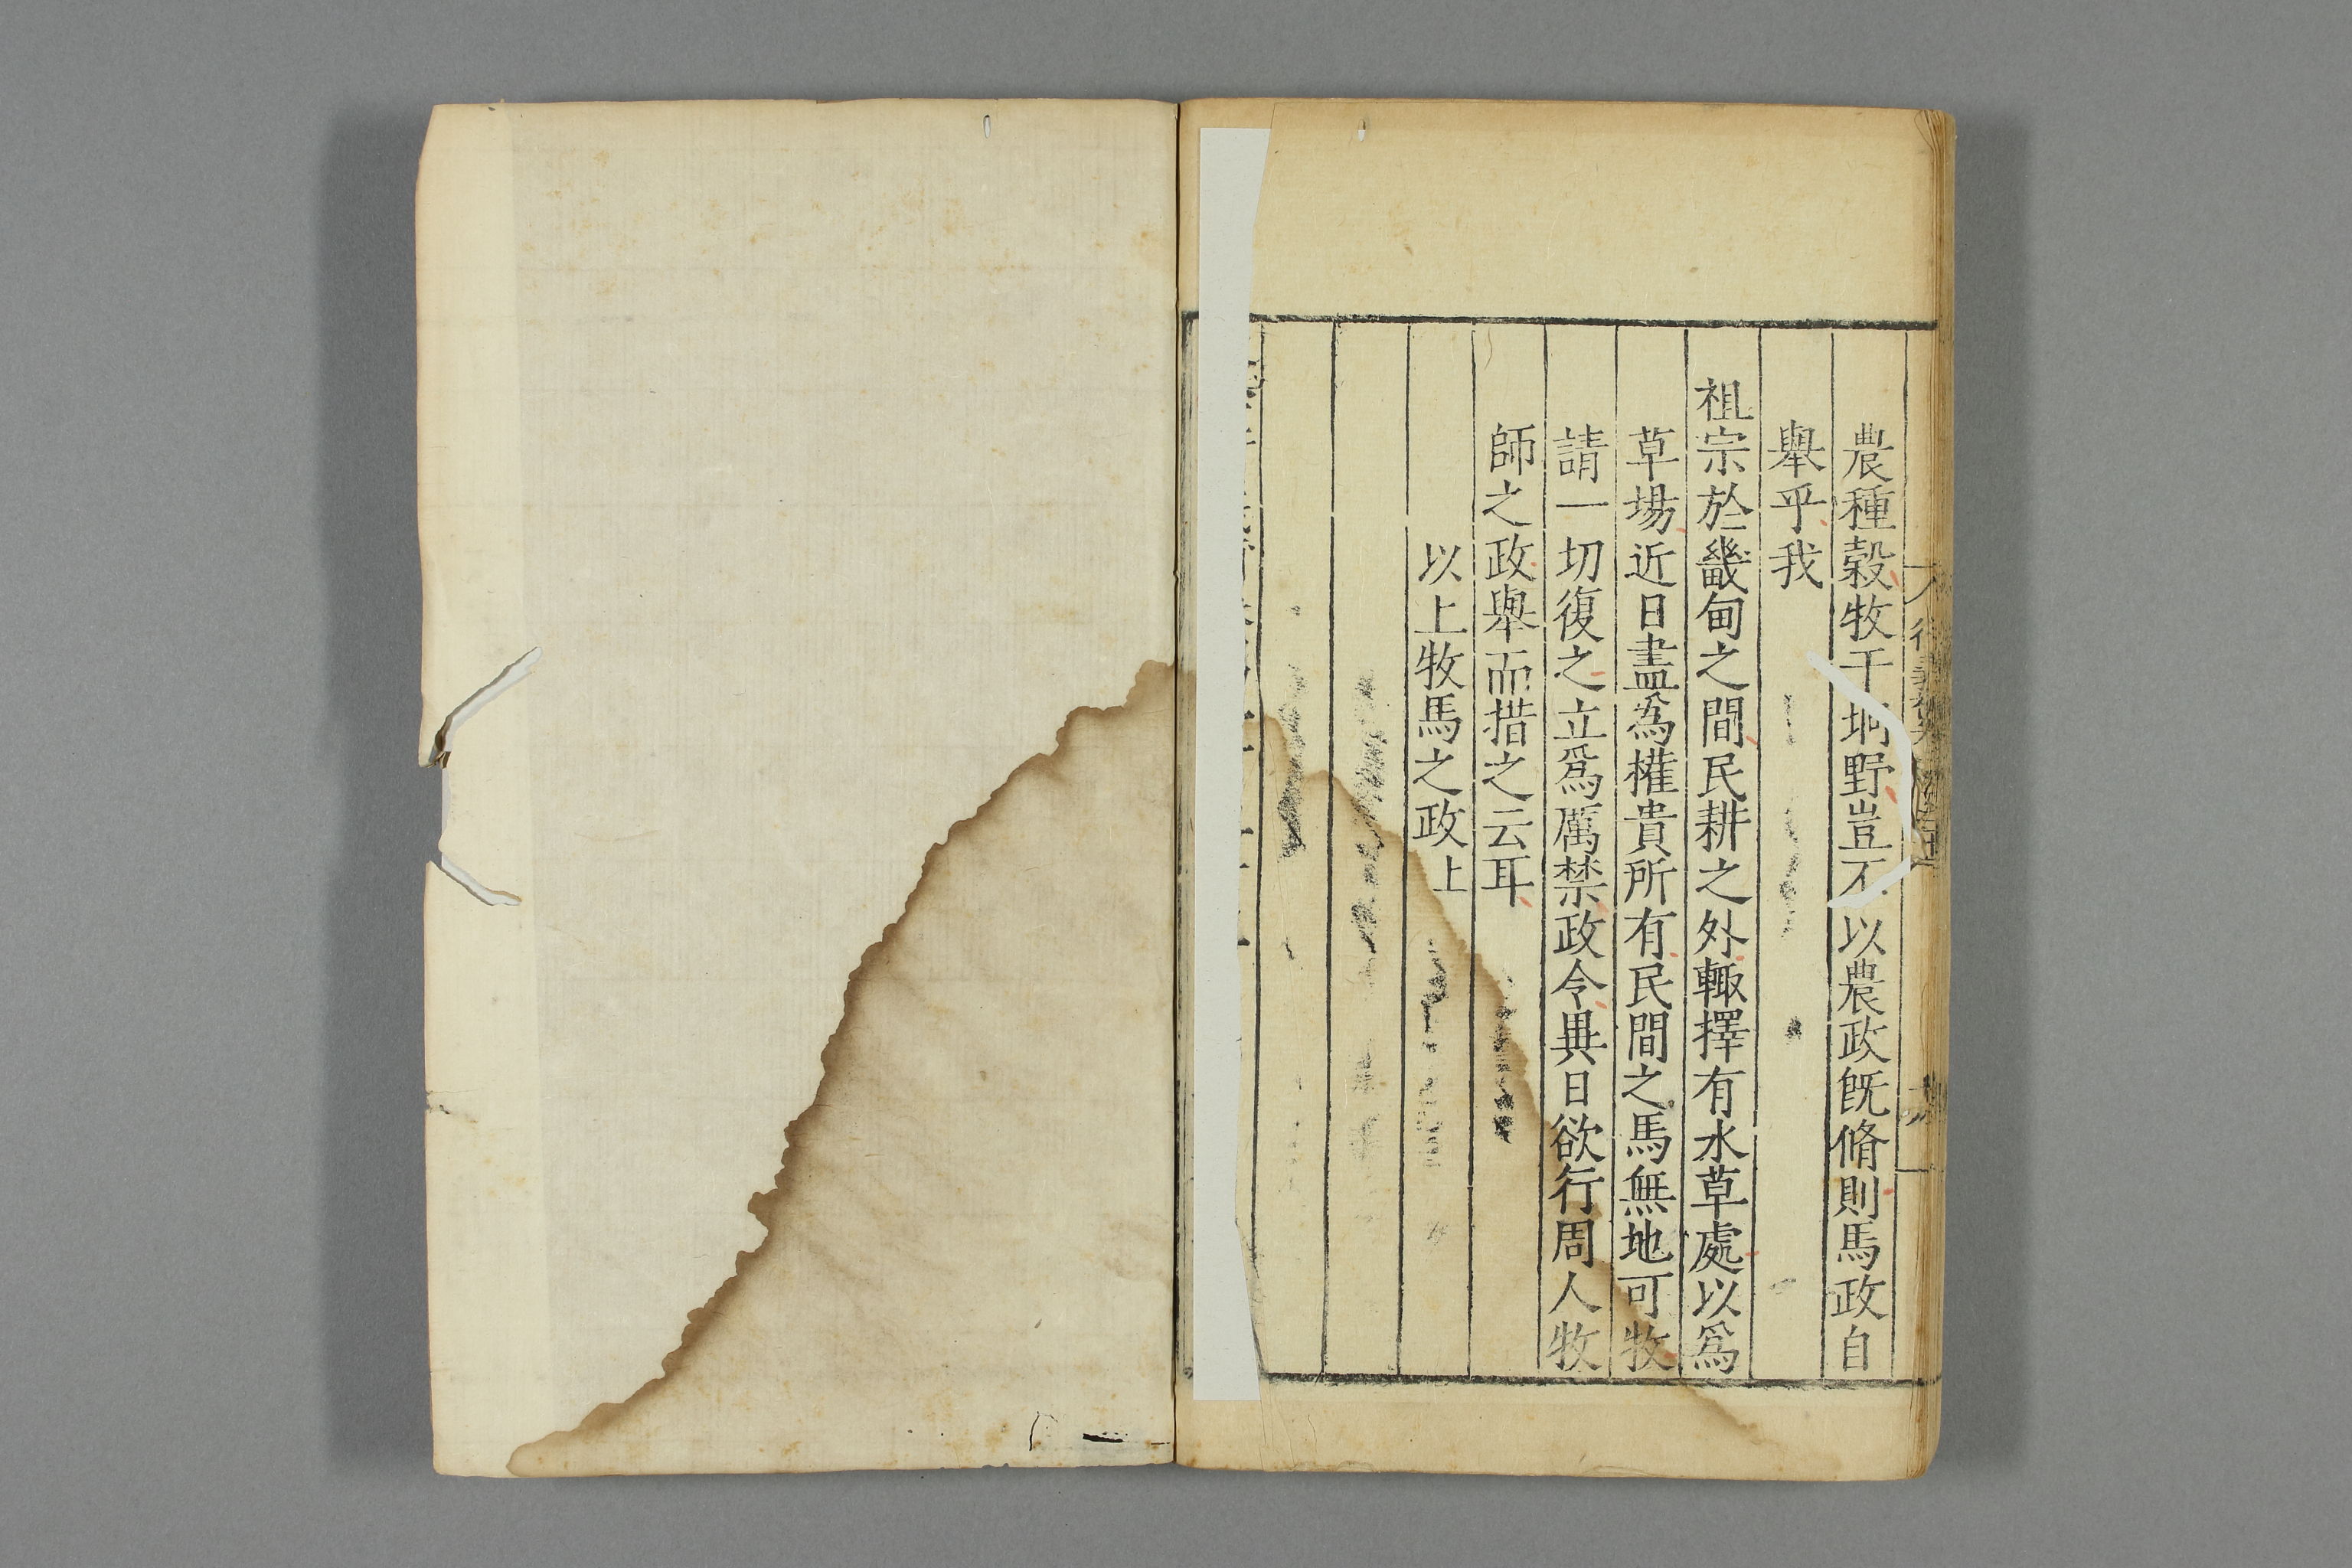 農種穀牧于坰野豈不以農政旣脩則馬政自
舉乎我
祖宗於畿甸之間民耕之外輙擇有水草處以爲
草場近日盡爲權貴所有民間之馬無地可牧
請一切復之立爲厲禁政令異日欲行周人牧
師之政舉而措之云耳
以上牧馬之政上